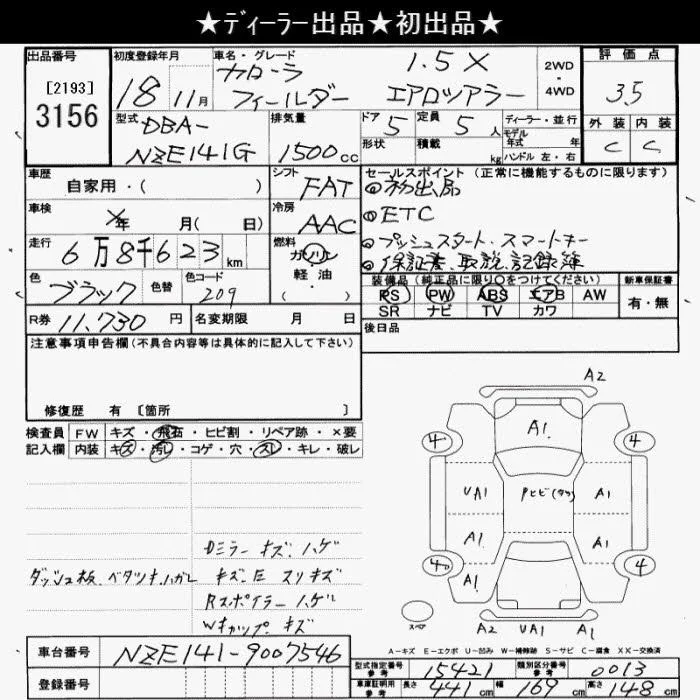 ★ディーラー出品★初出品★
出品番号
[2193]
3156
初度登録年月
18 11月
車名・グレード
カローラ 1.5X
フィールダー エアロツアラー
2WD
・
4WD
評価点
3.5
外装 内装
C C
型式
DBA-
NZE141G
排気量
1500cc
ドア 5
形状
定員 5人
積載 kg
ディーラー・並行
モデル
年式 年
ハンドル 左・右
車歴
自家用・( )
シフト
FAT
セールスポイント(正常に機能するものに限ります)
初出品
ETC
プッシュスタート.スマートキー
保証書.取説.記録簿
車検
年 月( 日)
冷房
AAC
走行
6万8千623km
燃料
ガソリン
軽油
( ・ )
色
ブラック
色替
色コード
209
装備品(純正品に限り○をつけてください)
PS PW ABS エアB AW
SR ナビ TV カワ
新車保証書
有・無
R券 11,730円
名変期限 月 日
後日品
注意事項申告欄(不具合内容等は具体的に記入して下さい)
修復歴 有 [箇所 ]
検査員
記入欄
FW キズ・飛石・ヒビ割・リペア跡・×要
内装 キズ・汚し・コゲ・穴・スレ・キレ・破レ
Dミラー キズ.ハゲ
ダッシュ板.ベタツキ.ハガレ
キズ.E スリキズ
Rスポイラー ハゲ
Wキャップ キズ
A2
A1
4 4
UA1 A1
A1 A1
4 4
A1
A2 UA1 A1
スペア
A-キズ E-エクボ U-凹み W-補修跡 S-サビ C-腐食 XX-交換済
車台番号 NZE141-9007546
登録番号
型式指定番号
参考
15421
類別区分番号
参考
0013
車庫証明用
参考
長さ 441cm 幅 169cm 高さ 148cm